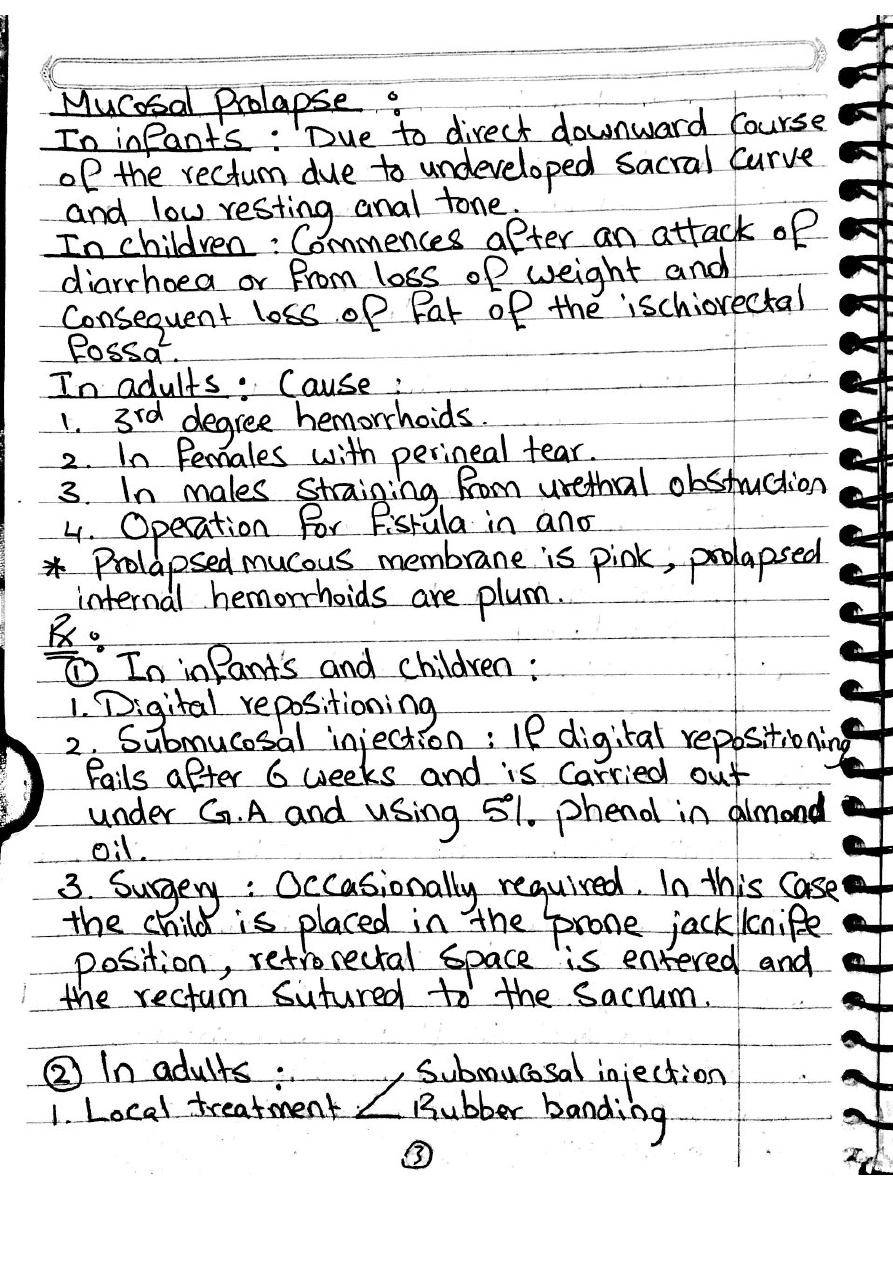 Mucosal Prolapse :
In infants : Due to direct downward course
of the rectum due to undeveloped sacral curve
and low resting anal tone.
In children : Commences after an attack of
diarrhoea or from loss of weight and
Consequent loss of fat of the ischiorectal
fossa.
In adults : Cause :
1. 3rd degree hemorrhoids.
2. In females with perineal tear.
3. In males straining from urethral obstruction
4. Operation for fistula in ano
* Prolapsed mucous membrane is pink, prolapsed
internal hemorrhoids are plum.
Rx :
① In infants and children :
1. Digital repositioning
2. Submucosal injection : If digital repositioning
fails after 6 weeks and is carried out
under G.A and using 5% phenol in almond
oil.
3. Surgery : Occasionally required. In this case
the child is placed in the prone jack knife
position, retrorectal space is entered and
the rectum sutured to the sacrum.
② In adults :
1. Local treatment < Submucosal injection
Rubber banding
③